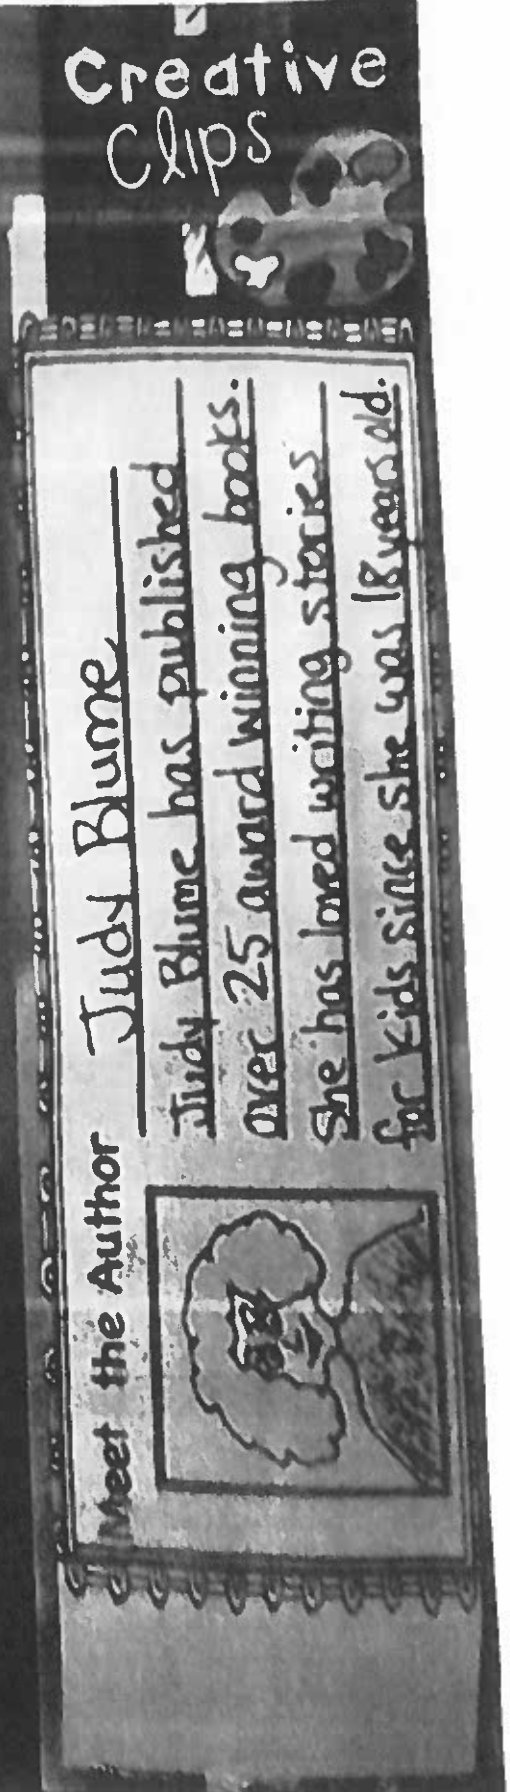 Creative
Clips
Meet the Author Judy Blume
Judy Blume has published
over 25 award winning books.
She has loved writing stories
for kids since she was 18 years old.